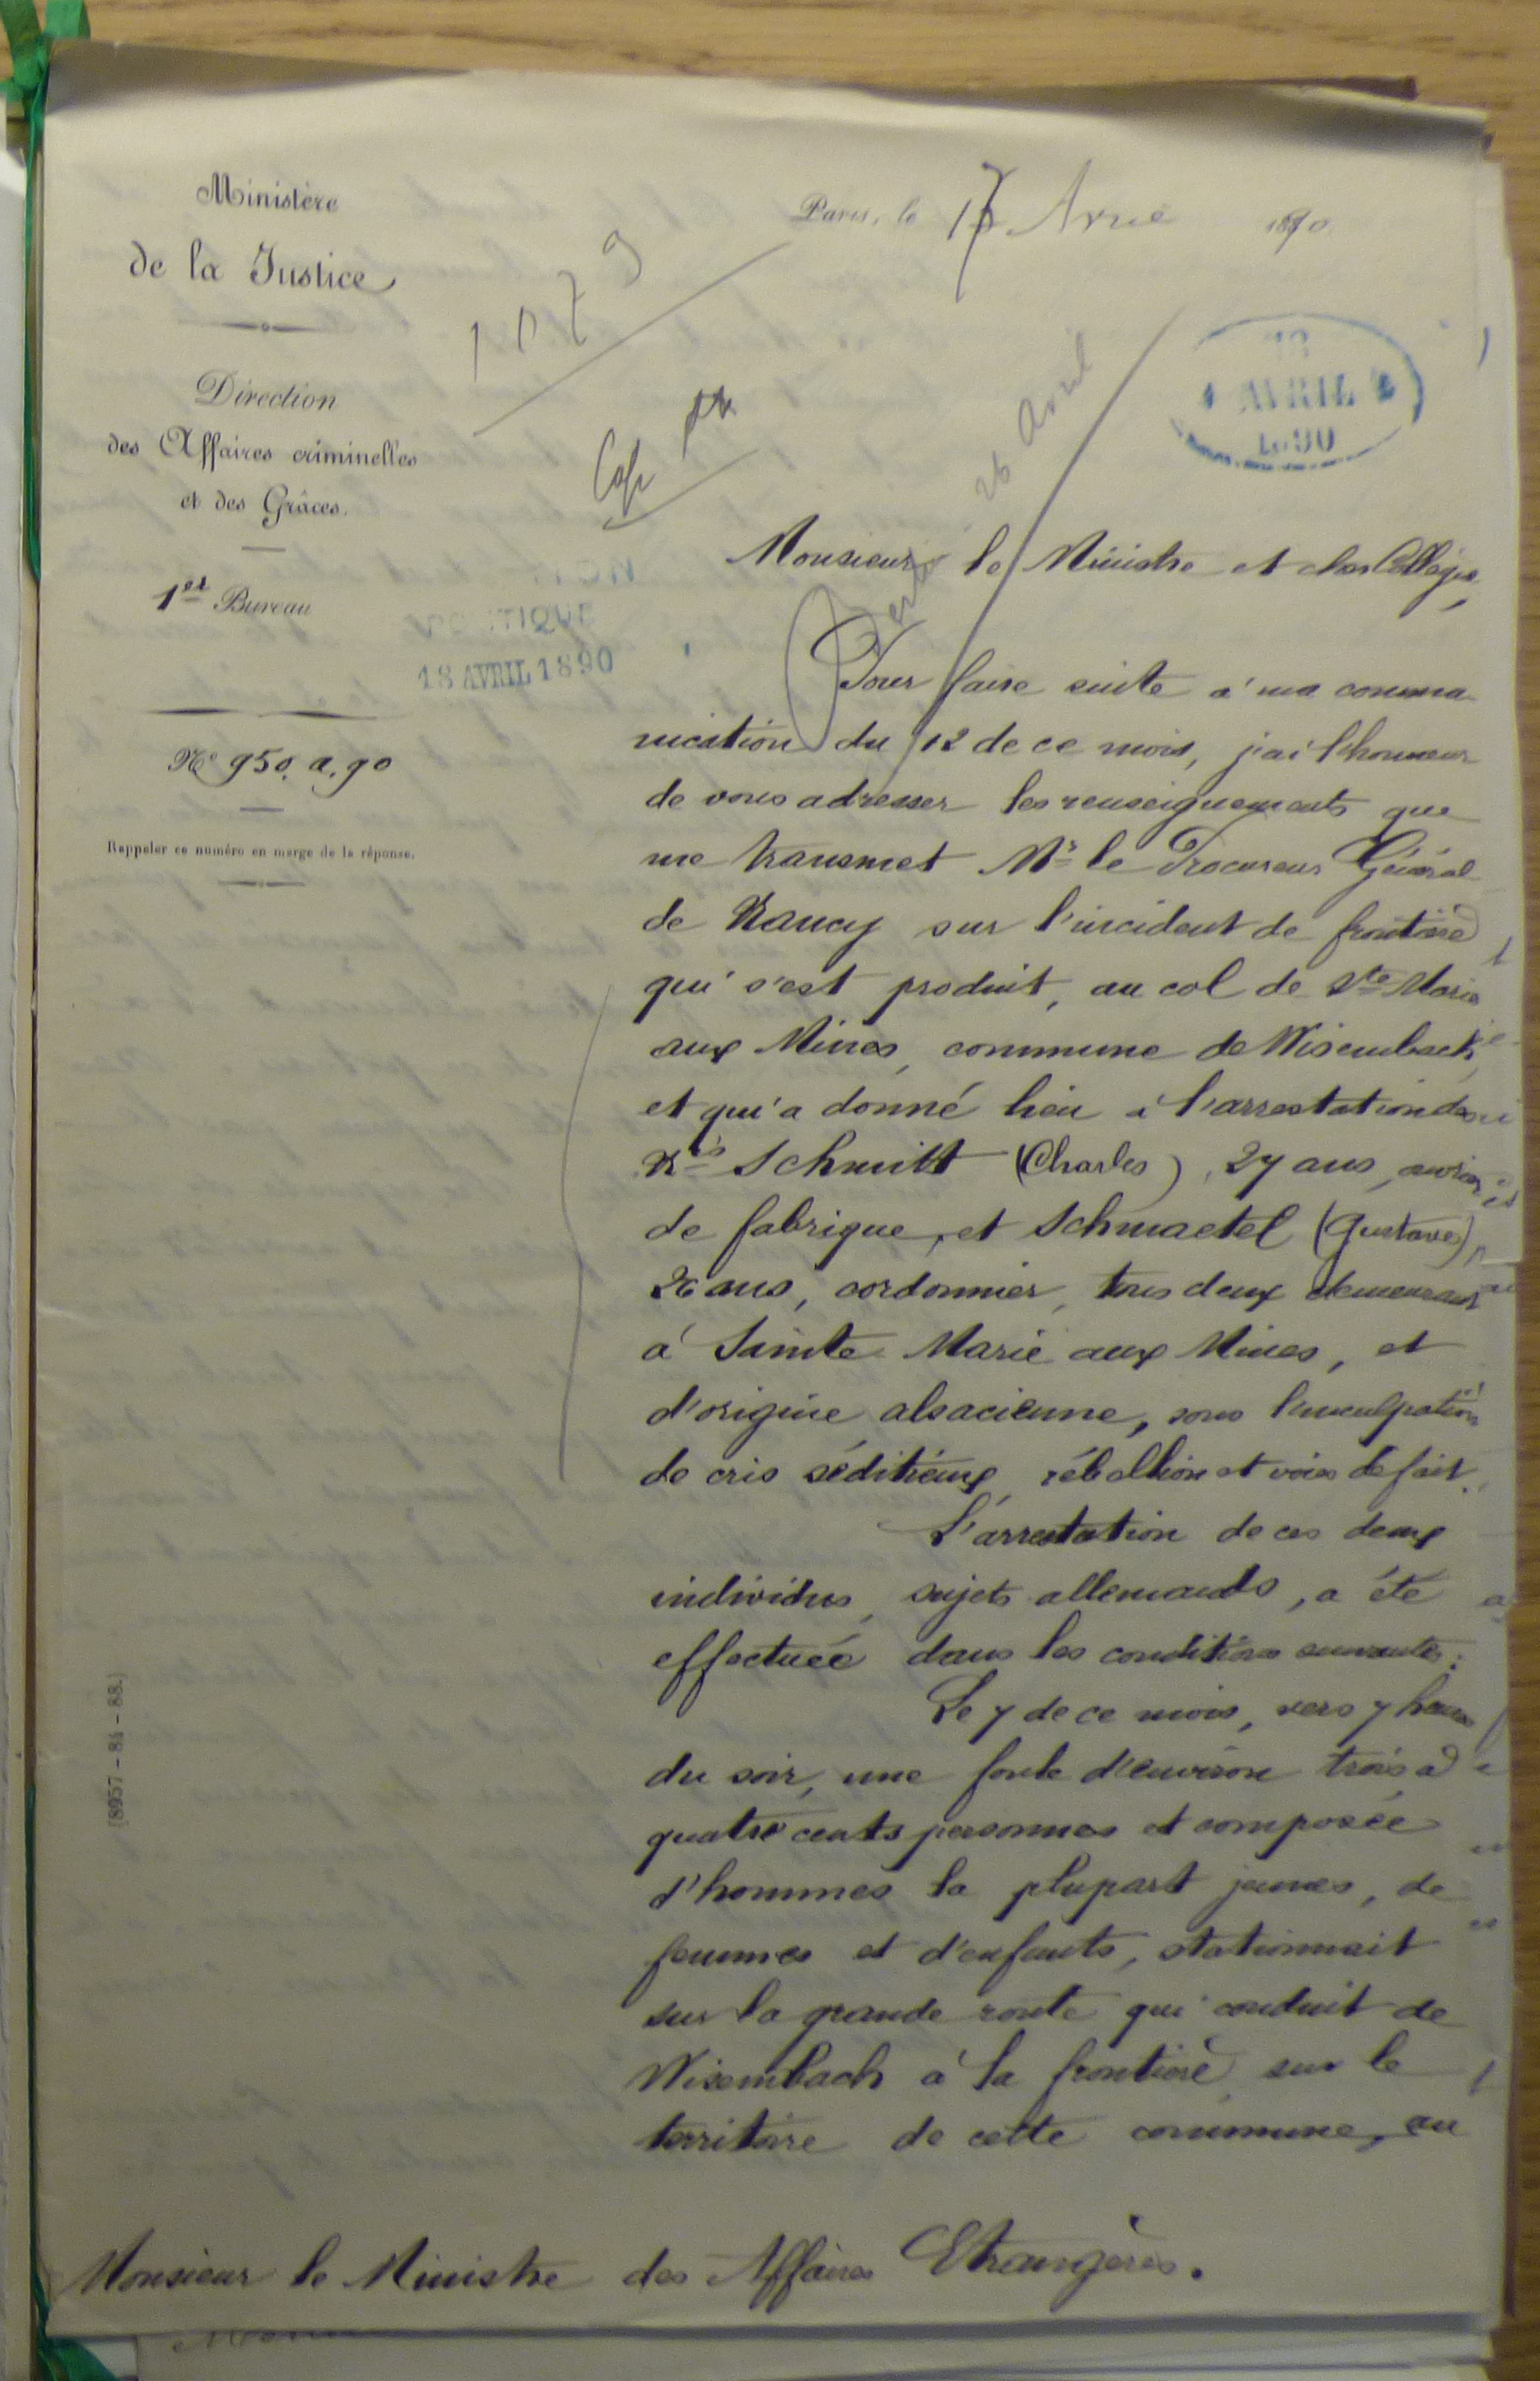 Ministère
de la Justice
Direction
des Affaires criminelles
et des Grâces.
1er Bureau
No 950. a. 90
Rappeler ce numéro en marge de la réponse.
[8957 – 84 – 88.]
Paris, le 17 Avril 1890
1079
26 avril
18
AVRIL
1890
POLITIQUE
18 AVRIL 1890
Monsieur le Ministre et cher Collègue,
Pour faire suite à ma commu-
nication du 12 de ce mois, j'ai l'honneur
de vous adresser les renseignements que
me transmet Mr le Procureur Général
de Nancy sur l'incident de frontière
qui s'est produit, au col de Ste Marie
aux Mines, commune de Wisembach,
et qui a donné lieu à l'arrestation des
Nés Schmitt (Charles), 27 ans, ouvrier
de fabrique, et Schmaetel (Gustave),
26 ans, cordonnier, tous deux demeurant
à Sainte Marie aux Mines, et
d'origine alsacienne, sous l'inculpation
de cris séditieux, rébellion et voies de fait.
L'arrestation de ces deux
individus, sujets allemands, a été
effectuée dans les conditions suivantes:
Le 7 de ce mois, vers 7 heures
du soir, une foule d'environ trois à
quatre cents personnes et composée
d'hommes la plupart jeunes, de
femmes et d'enfants, stationnait
sur la grande route qui conduit de
Wisembach à la frontière, sur le
territoire de cette commune, au
Monsieur le Ministre des Affaires Etrangères.